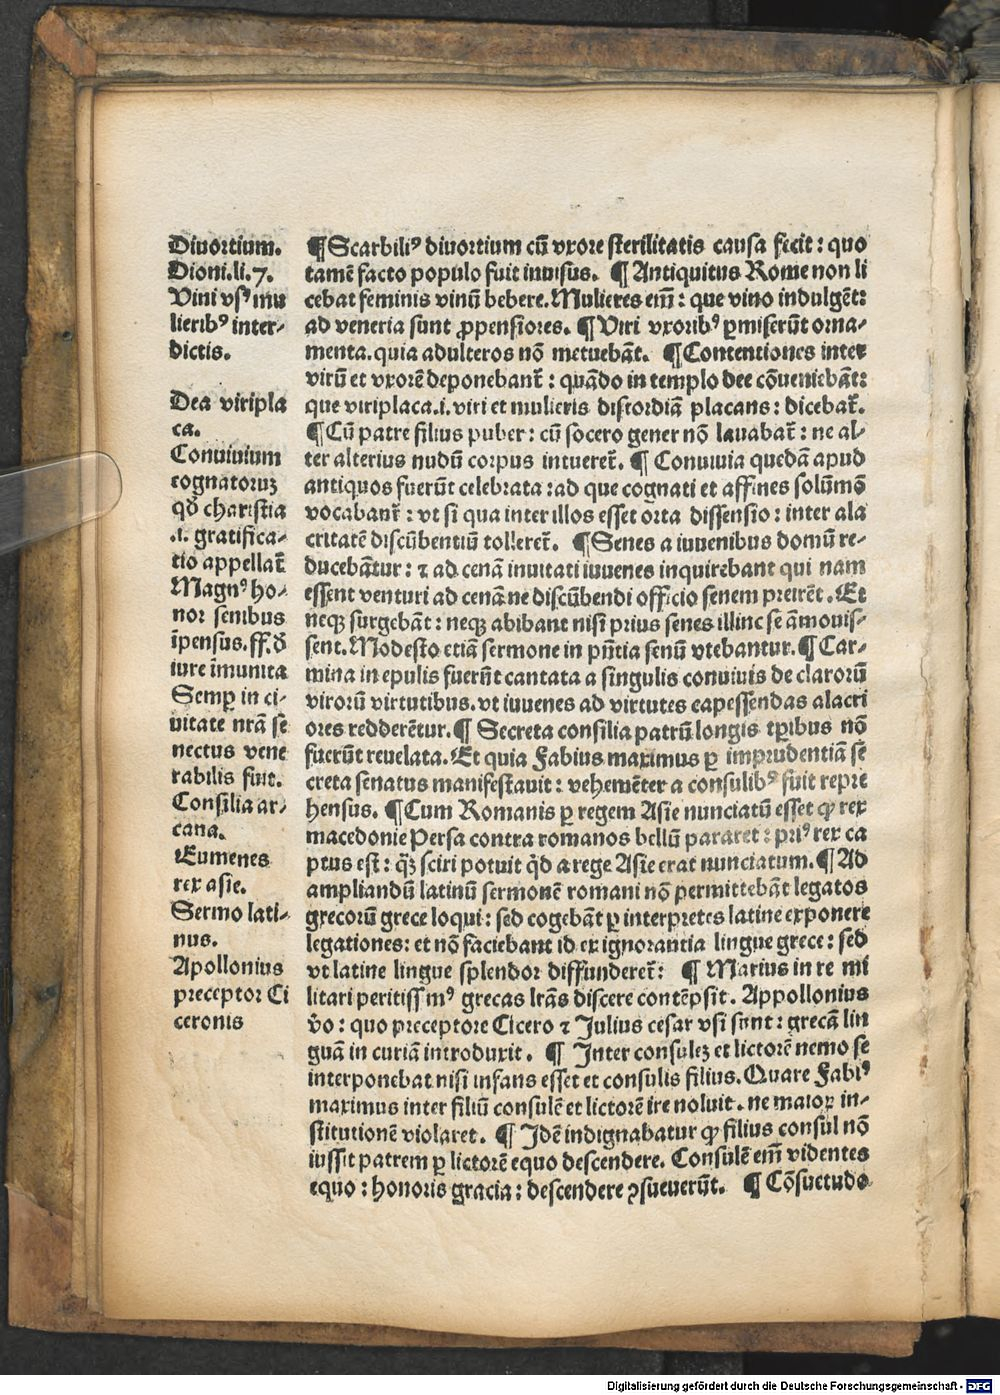 Diuortium.
Dioni.li.7.
Vini vsꝰ mu
lieribꝰ inter-
dictis.
Dea viripla
ca.
Conuiuium
cognatoruꝫ
qđ charistia
.i. gratifica-
tio appellat̄
Magnꝰ ho-
nor senibus
īpensus.ff.đ
iure īmunita
Semꝑ in ci-
uitate nrā se
nectus vene
rabilis fuit.
Consilia ar-
cana.
Eumenes
rex asie.
Sermo lati-
nus.
Apollonius
preceptor Ci
ceronis
¶Scarbiliꝰ diuortium cū vxore sterilitatis causa fecit: quo
tamē facto populo fuit inuisus. ¶Antiquitus Rome non li
cebat feminis vinū bebere. Mulieres em̄: que vino indulgēt:
ad veneria sunt ꝓpensiores. ¶Viri vxoribꝰ ꝑmiserūt orna-
menta.quia adulteros nō metuebāt. ¶Contentiones inter
virū et vxorē deponebant̄: quādo in templo dee cōueniebāt:
que viriplaca.i.viri et mulieris discordiā placans: dicebat̄.
¶Cū patre filius puber: cū socero gener nō lauabat̄: ne al-
ter alterius nudū corpus intueret̄. ¶Conuiuia quedā apud
antiquos fuerūt celebrata:ad que cognati et affines solūmō
vocabant̄: vt si qua inter illos esset orta dissensio: inter ala
critatē discūbentiū tolleret̄. ¶Senes a iuuenibus domū re-
ducebātur: ⁊ ad cenā inuitati iuuenes inquirebant qui nam
essent venturi ad cenā ne discūbendi officio senem preirēt. Et
neqꝫ surgebāt: neqꝫ abibant nisi prius senes illinc se āmouis-
sent. Modesto etiā sermone in pn̄tia senū vtebantur.¶Car-
mina in epulis fuerūt cantata a singulis conuiuis de clarorū
virorū virtutibus.vt iuuenes ad virtutes capessendas alacri
ores redderētur.¶ Secreta consilia patrū longis tꝑibus nō
fuerūt reuelata. Et quia Fabius maximus ꝑ imprudentiā se
creta senatus manifestauit: vehemēter a consulibꝰ fuit repre
hensus. ¶Cum Romanis ꝑ regem Asie nunciatū esset ꝙ rex
macedonie Persa contra romanos bellū pararet: priꝰ rex ca
ptus est: q̄ꝫ sciri potuit q̄d a rege Asie erat nunciatum.¶Ad
ampliandū latinū sermonē romani nō permittebāt legatos
grecorū grece loqui: sed cogebāt ꝑ interpretes latine exponere
legationes: et nō faciebant id ex ignorantia lingue grece: sed
vt latine lingue splendor diffunderet̄: ¶ Marius in re mi
litari peritissmꝰ grecas lr̄as discere contēpsit. Appollonius
v̄o: quo preceptore Cicero ⁊ Julius cesar vsi sunt: grecā lin
guā in curiā introduxit. ¶ Inter consuleꝫ et lictorē nemo se
interponebat nisi infans esset et consulis filius. Quare Fabiꝰ
maximus inter filiū consulē et lictorē ire noluit. ne maioꝝ in-
stitutionē violaret. ¶ Idē indignabatur ꝙ filius consul nō
iussit patrem ꝑ lictorē equo descendere. Consulē em̄ videntes
equo: honoris gracia: descendere ꝯsueuerūt. ¶ Cōsuetudo
Digitalisierung gefördert durch die Deutsche Forschungsgemeinschaft - DFG